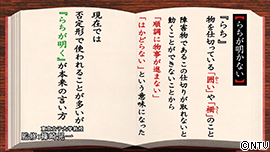 【らちが明かない】
『らち』
物を仕切っている「囲い」や「柵」のこと
障害物であるこの仕切りが取れないと
動くことができないことから
「順調に物事が進まない」
「はかどらない」という意味になった
現在では
否定形で使われることが多いが
『らちが明く』が本来の言い方
©NTV